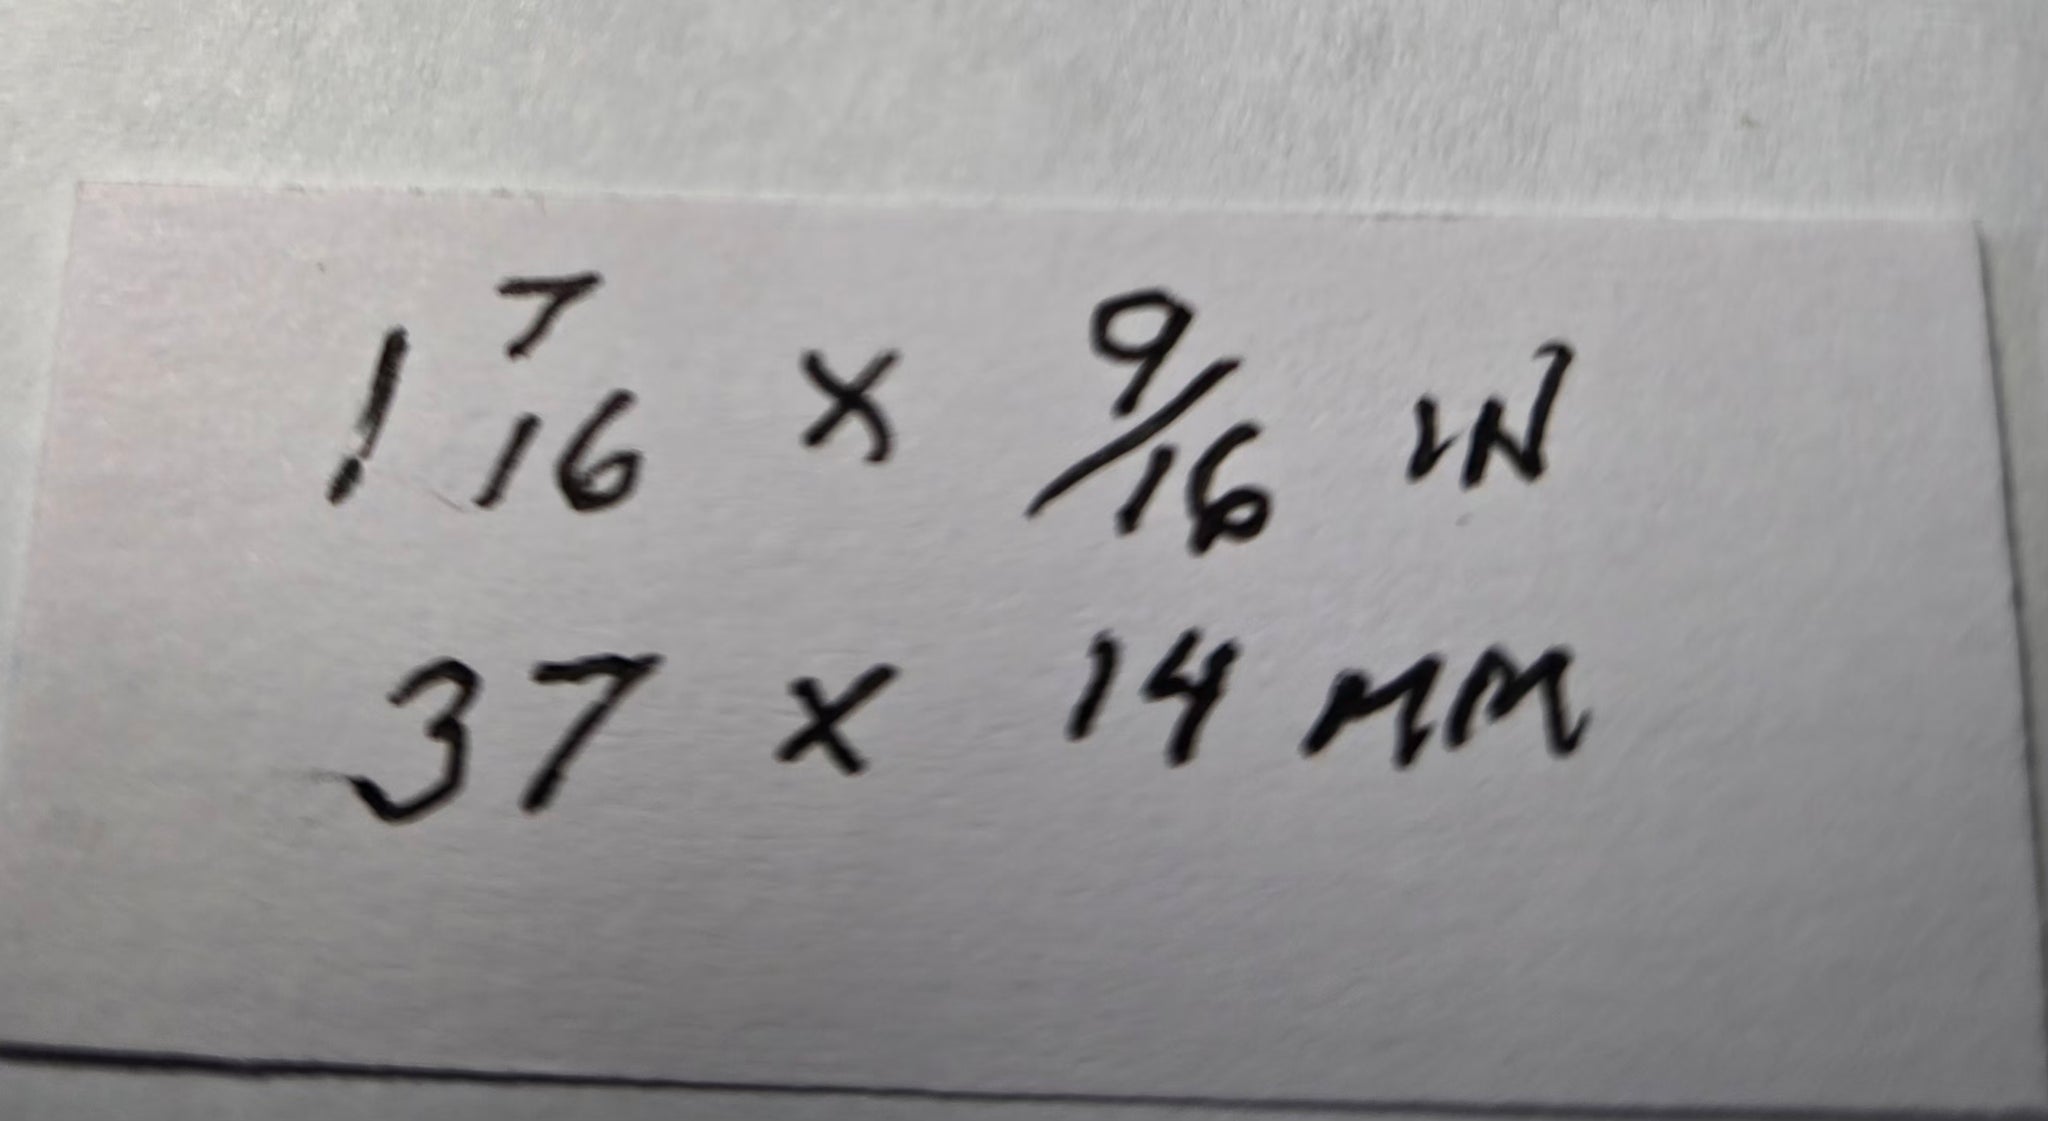 1 7/16 x 9/16 IN
37 x 14 MM